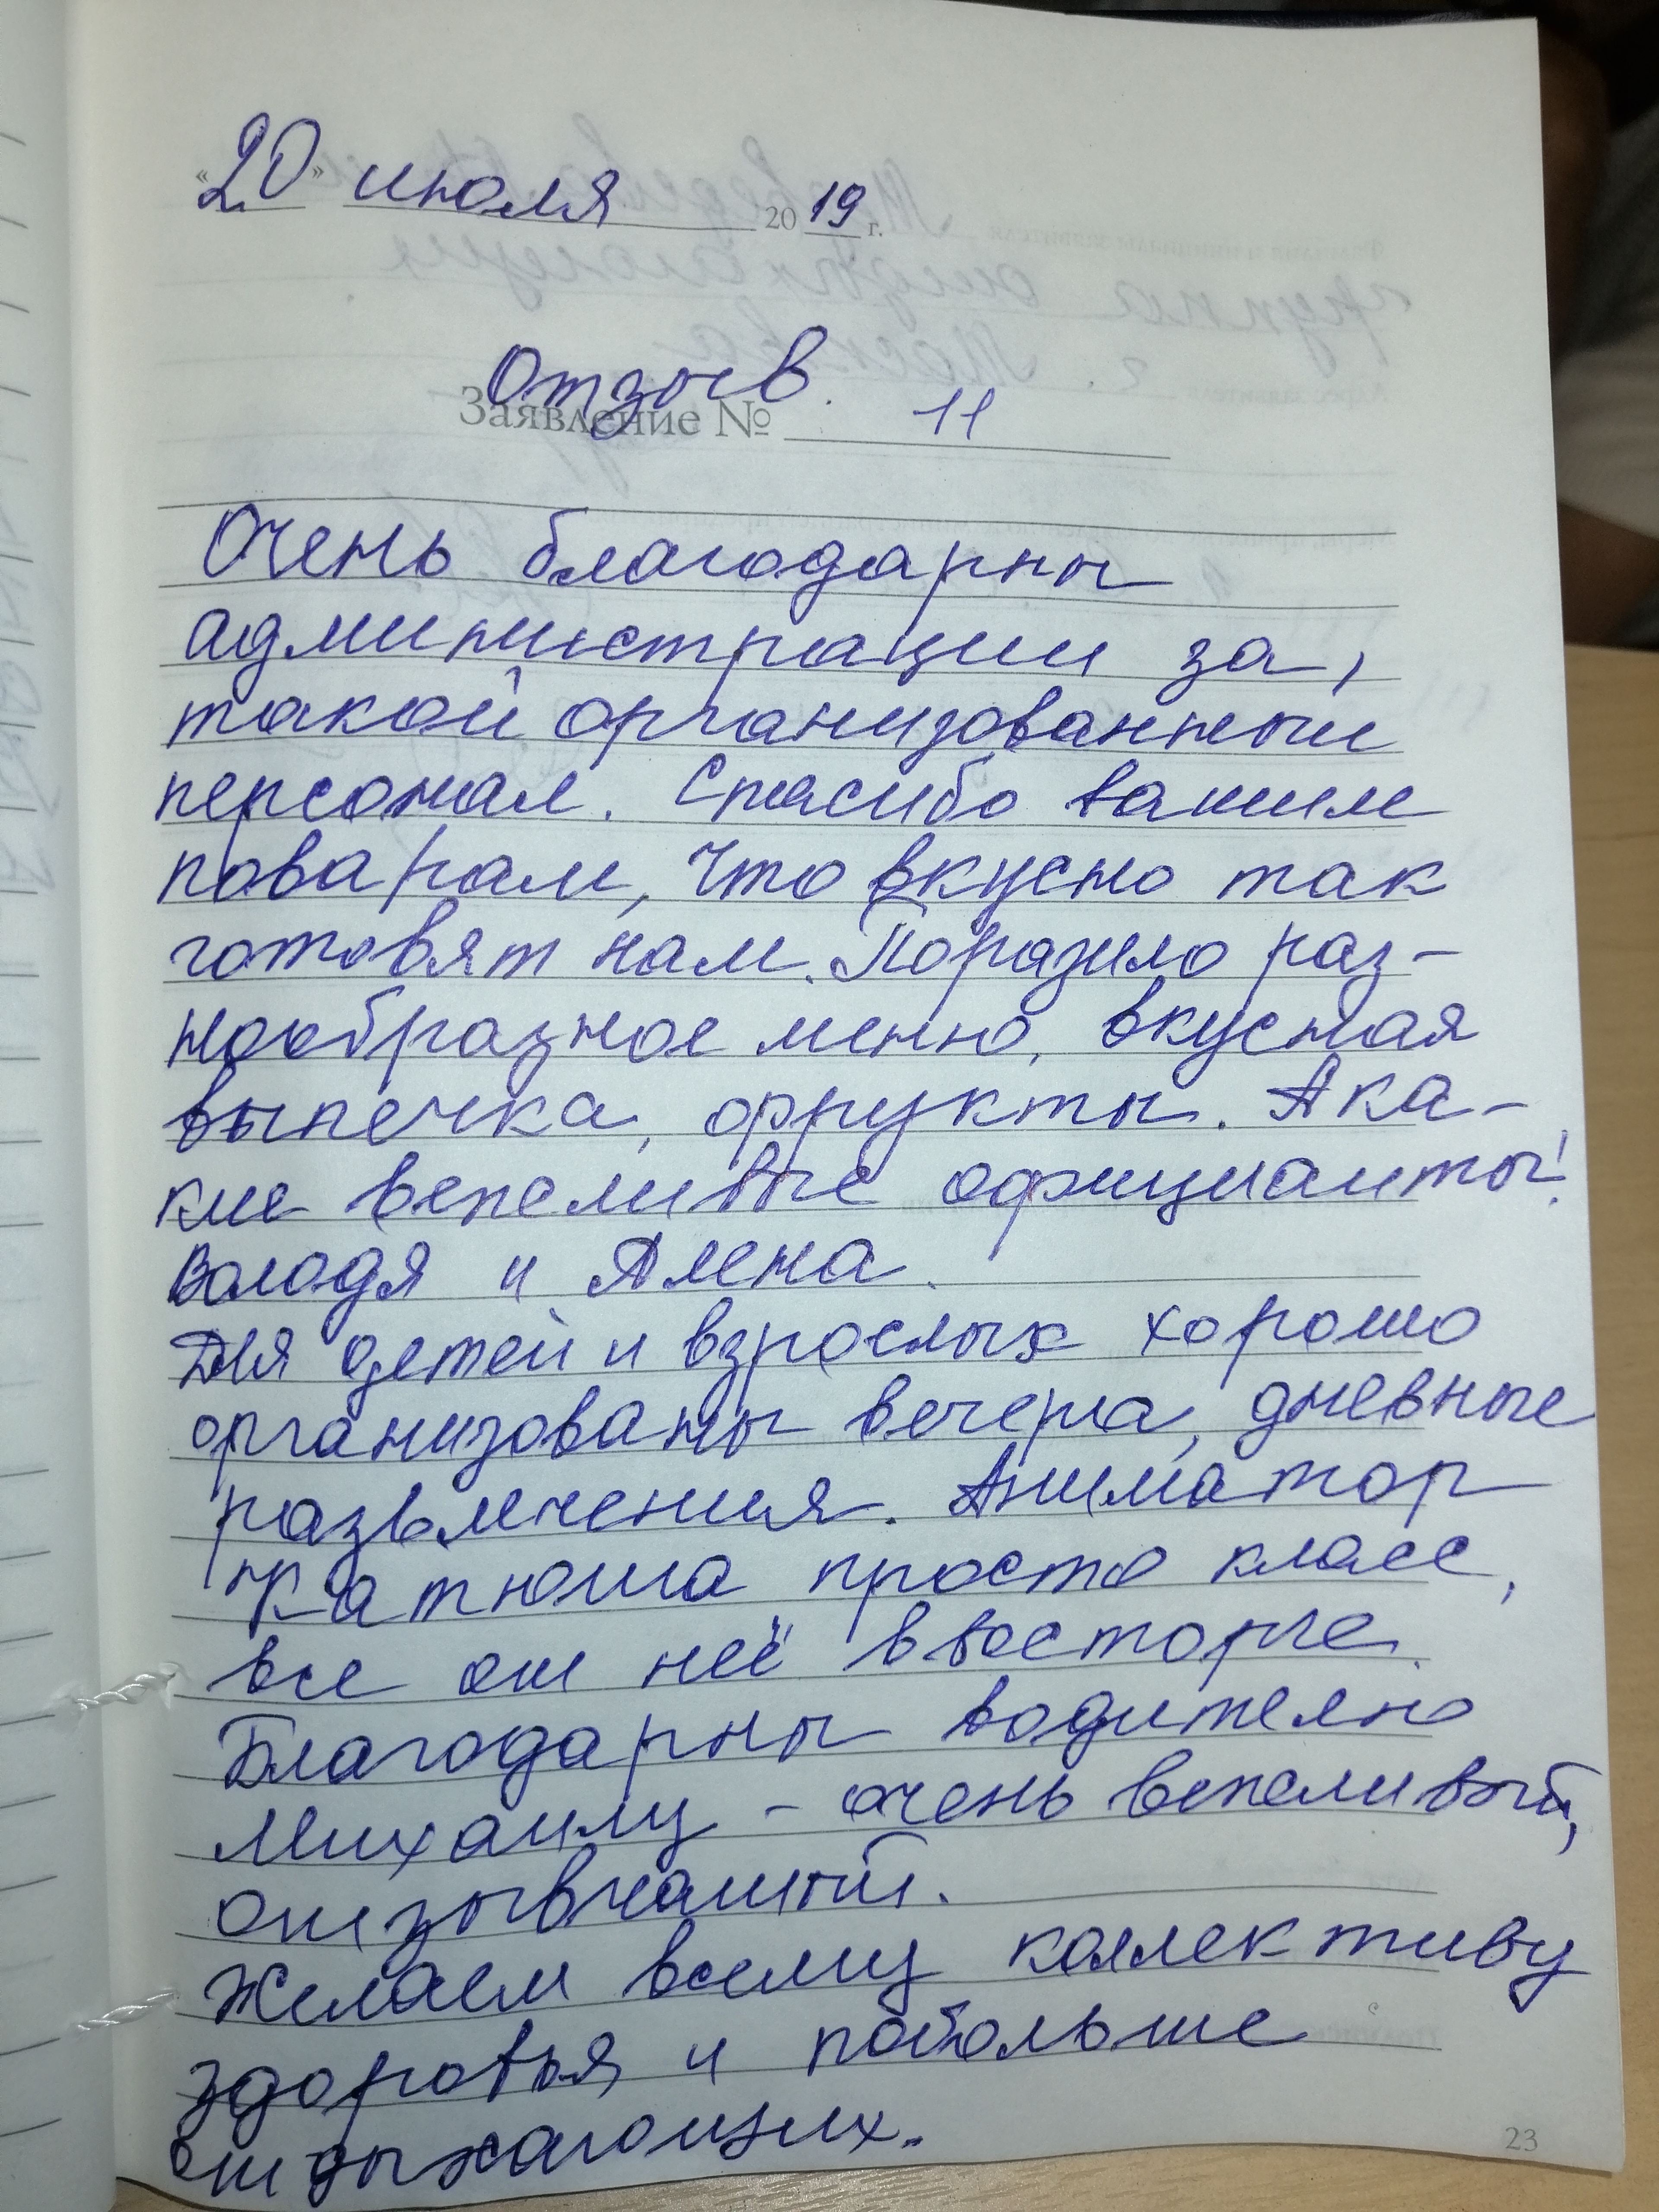 «20» июля 2019 г.
Отзыв.
Заявление № 11
Очень благодарны
администрации за,
такой организованный
персонал. Спасибо вашим
поварам, что вкусно так
готовят нам. Поразило раз-
нообразное меню, вкусная
выпечка, фрукты. А ка-
кие вежливые официанты!
Володя и Алена.
Для детей и взрослых хорошо
организованы вечера, дневные
развлечения. Аниматор
Катюша просто класс,
все от неё в восторге.
Благодарны водителю
Михаилу - очень вежливый,
отзывчивый.
Желаем всему коллективу
здоровья и побольше
отдыхающих.
23